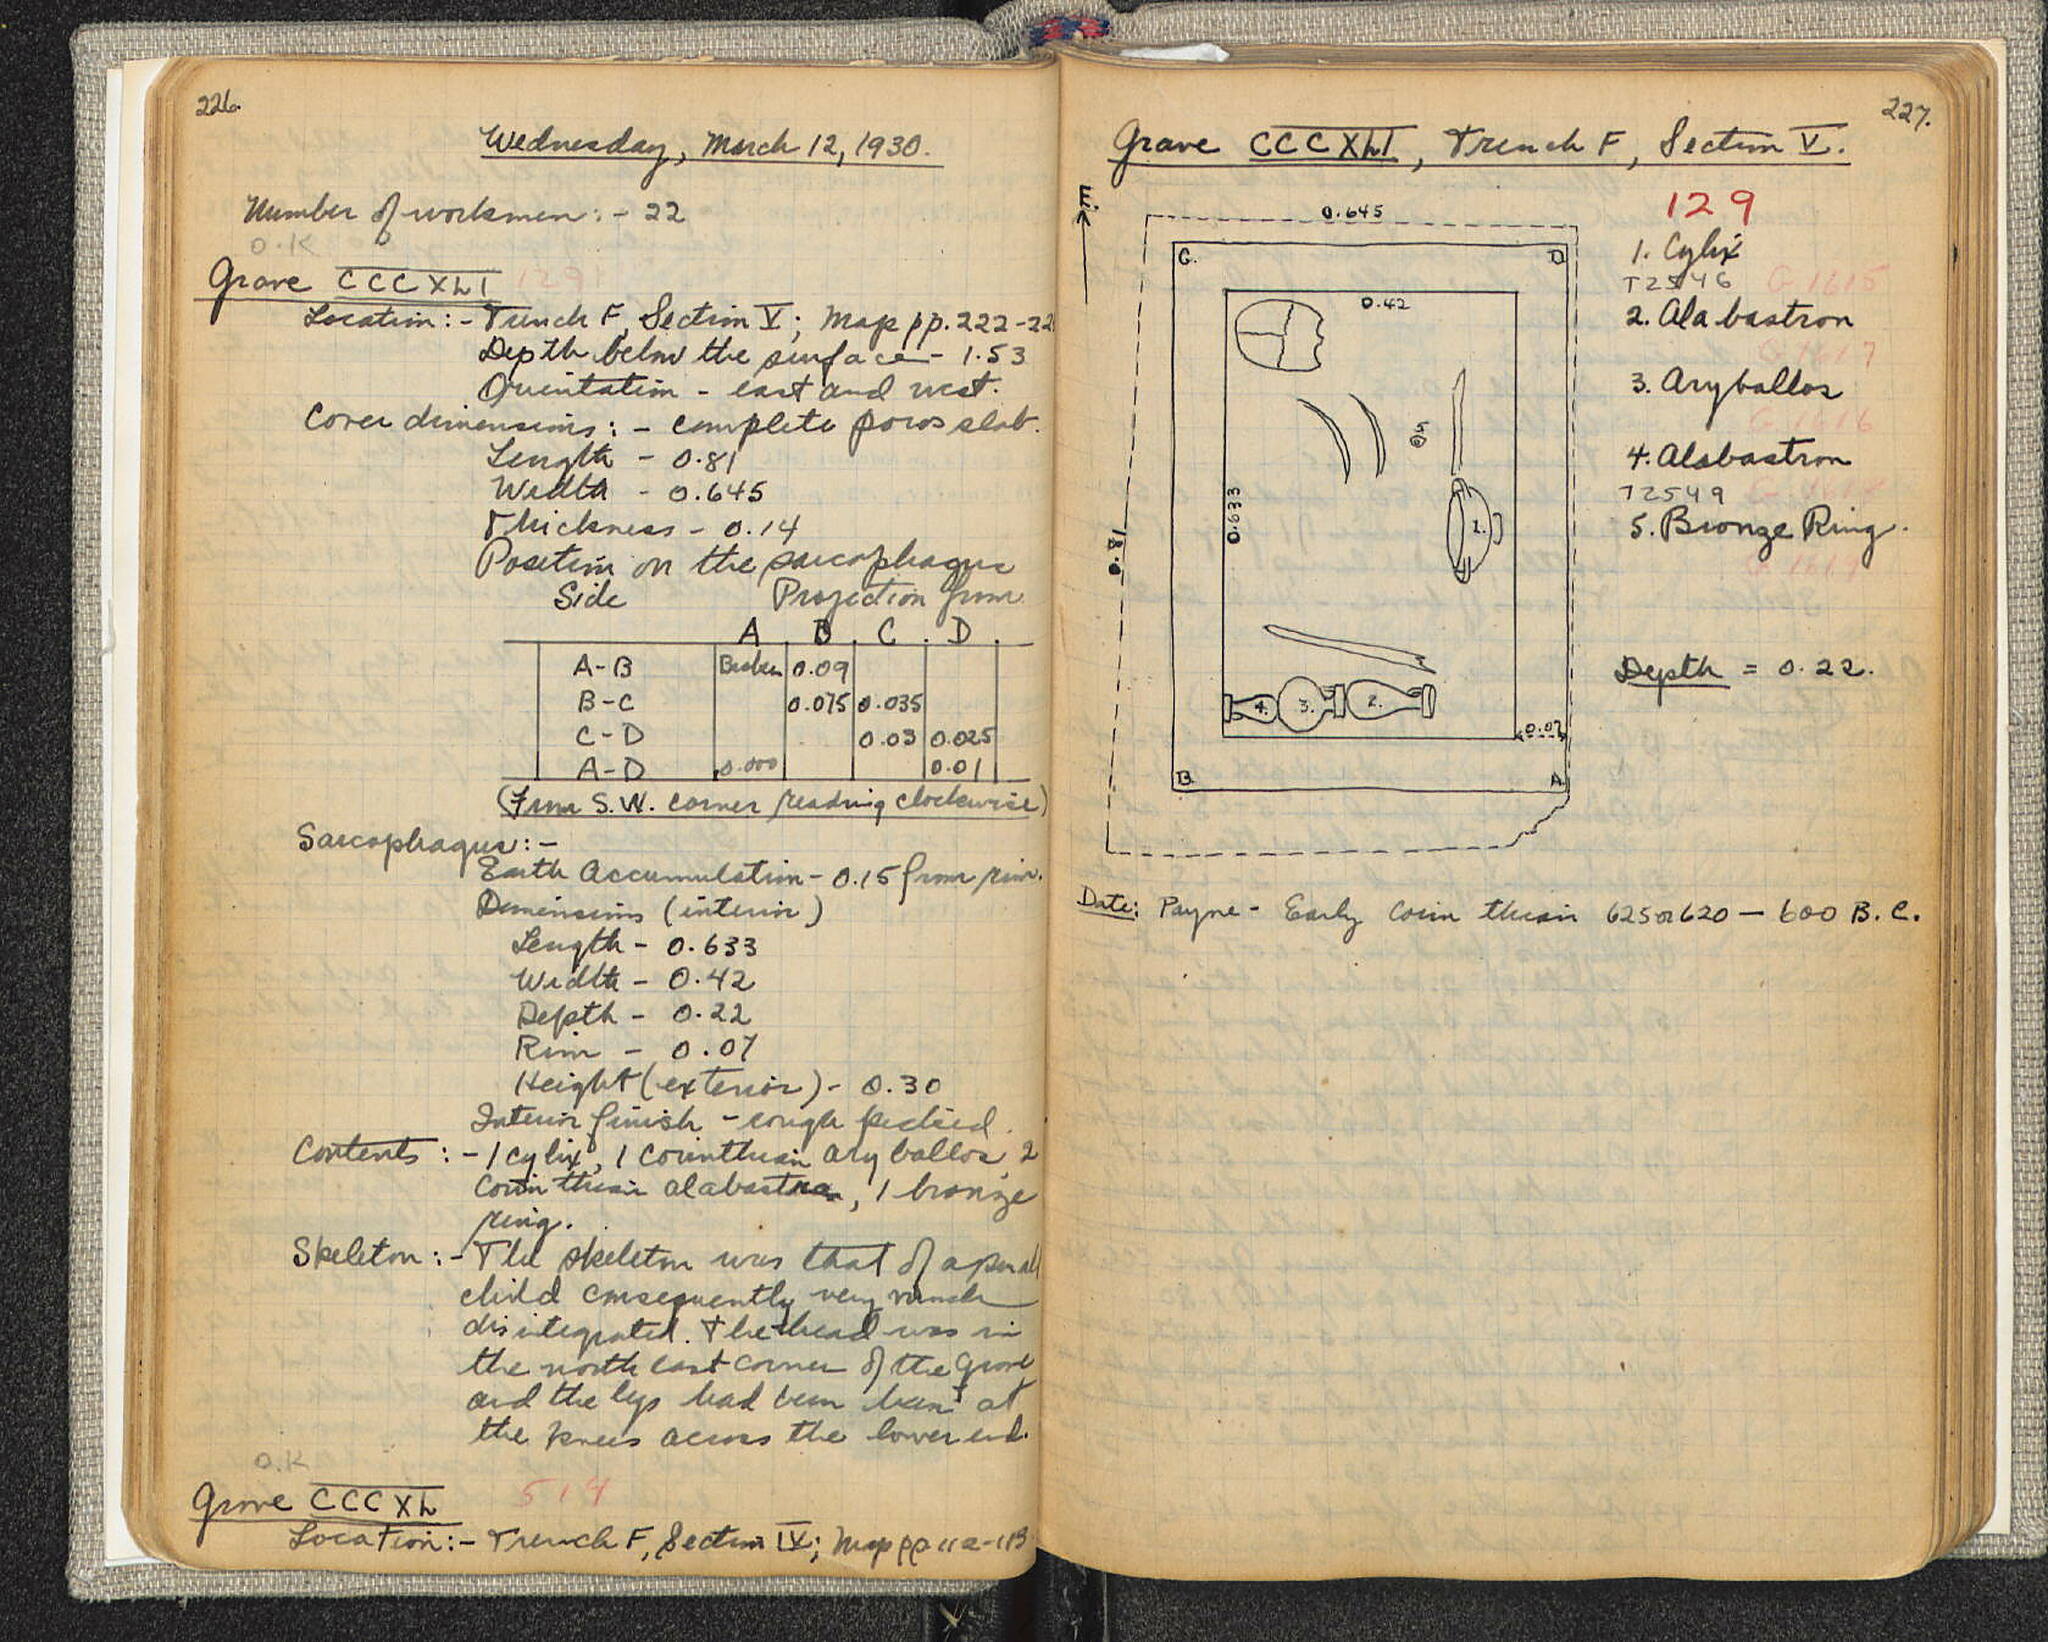 226.
Wednesday, March 12, 1930.
Number of workmen: - 22
O.K
Grave CCCXLI
Location: - Trench F, Section V; Map pp. 222-22
Depth below the surface - 1.53
Orientation - east and west.
Cover dimensions: - complete poros slab.
Length - 0.81
Width - 0.645
Thickness - 0.14
Position on the sarcophagus
Side Projection from
A B C D
A-B Broken 0.09
B-C 0.075 0.035
C-D 0.03 0.025
A-D 0.000 0.01
(From S.W. corner reading clockwise)
Sarcophagus: -
Earth Accumulation - 0.15 from rim.
Dimensions (interior)
Length - 0.633
Width - 0.42
Depth - 0.22
Rim - 0.07
Height (exterior) - 0.30
Interior finish - rough picked.
Contents: - 1 cylix, 1 Corinthian aryballos, 2
Corinthian alabastra, 1 bronze
ring.
Skeleton: - The skeleton was that of a small
child consequently very much
disintegrated. The head was in
the north east corner of the grave
and the legs had been bent at
the knees across the lower end.
O.K
Grave CCCXL 514
Location: - Trench F, Section IV; Map pp 112-113
227.
Grave CCCXLI, Trench F, Section V.
E.
129
0.645
C. D
0.42
5
0.633
1.
0.81
4. 3. 2.
0.07
B. A
1. Cylix
T2546 G 1615
2. Alabastron
G 1617
3. Aryballos
G 1616
4. Alabastron
T2549
5. Bronze Ring.
Depth = 0.22.
Date: Payne - Early Corinthian 625 or 620 — 600 B.C.